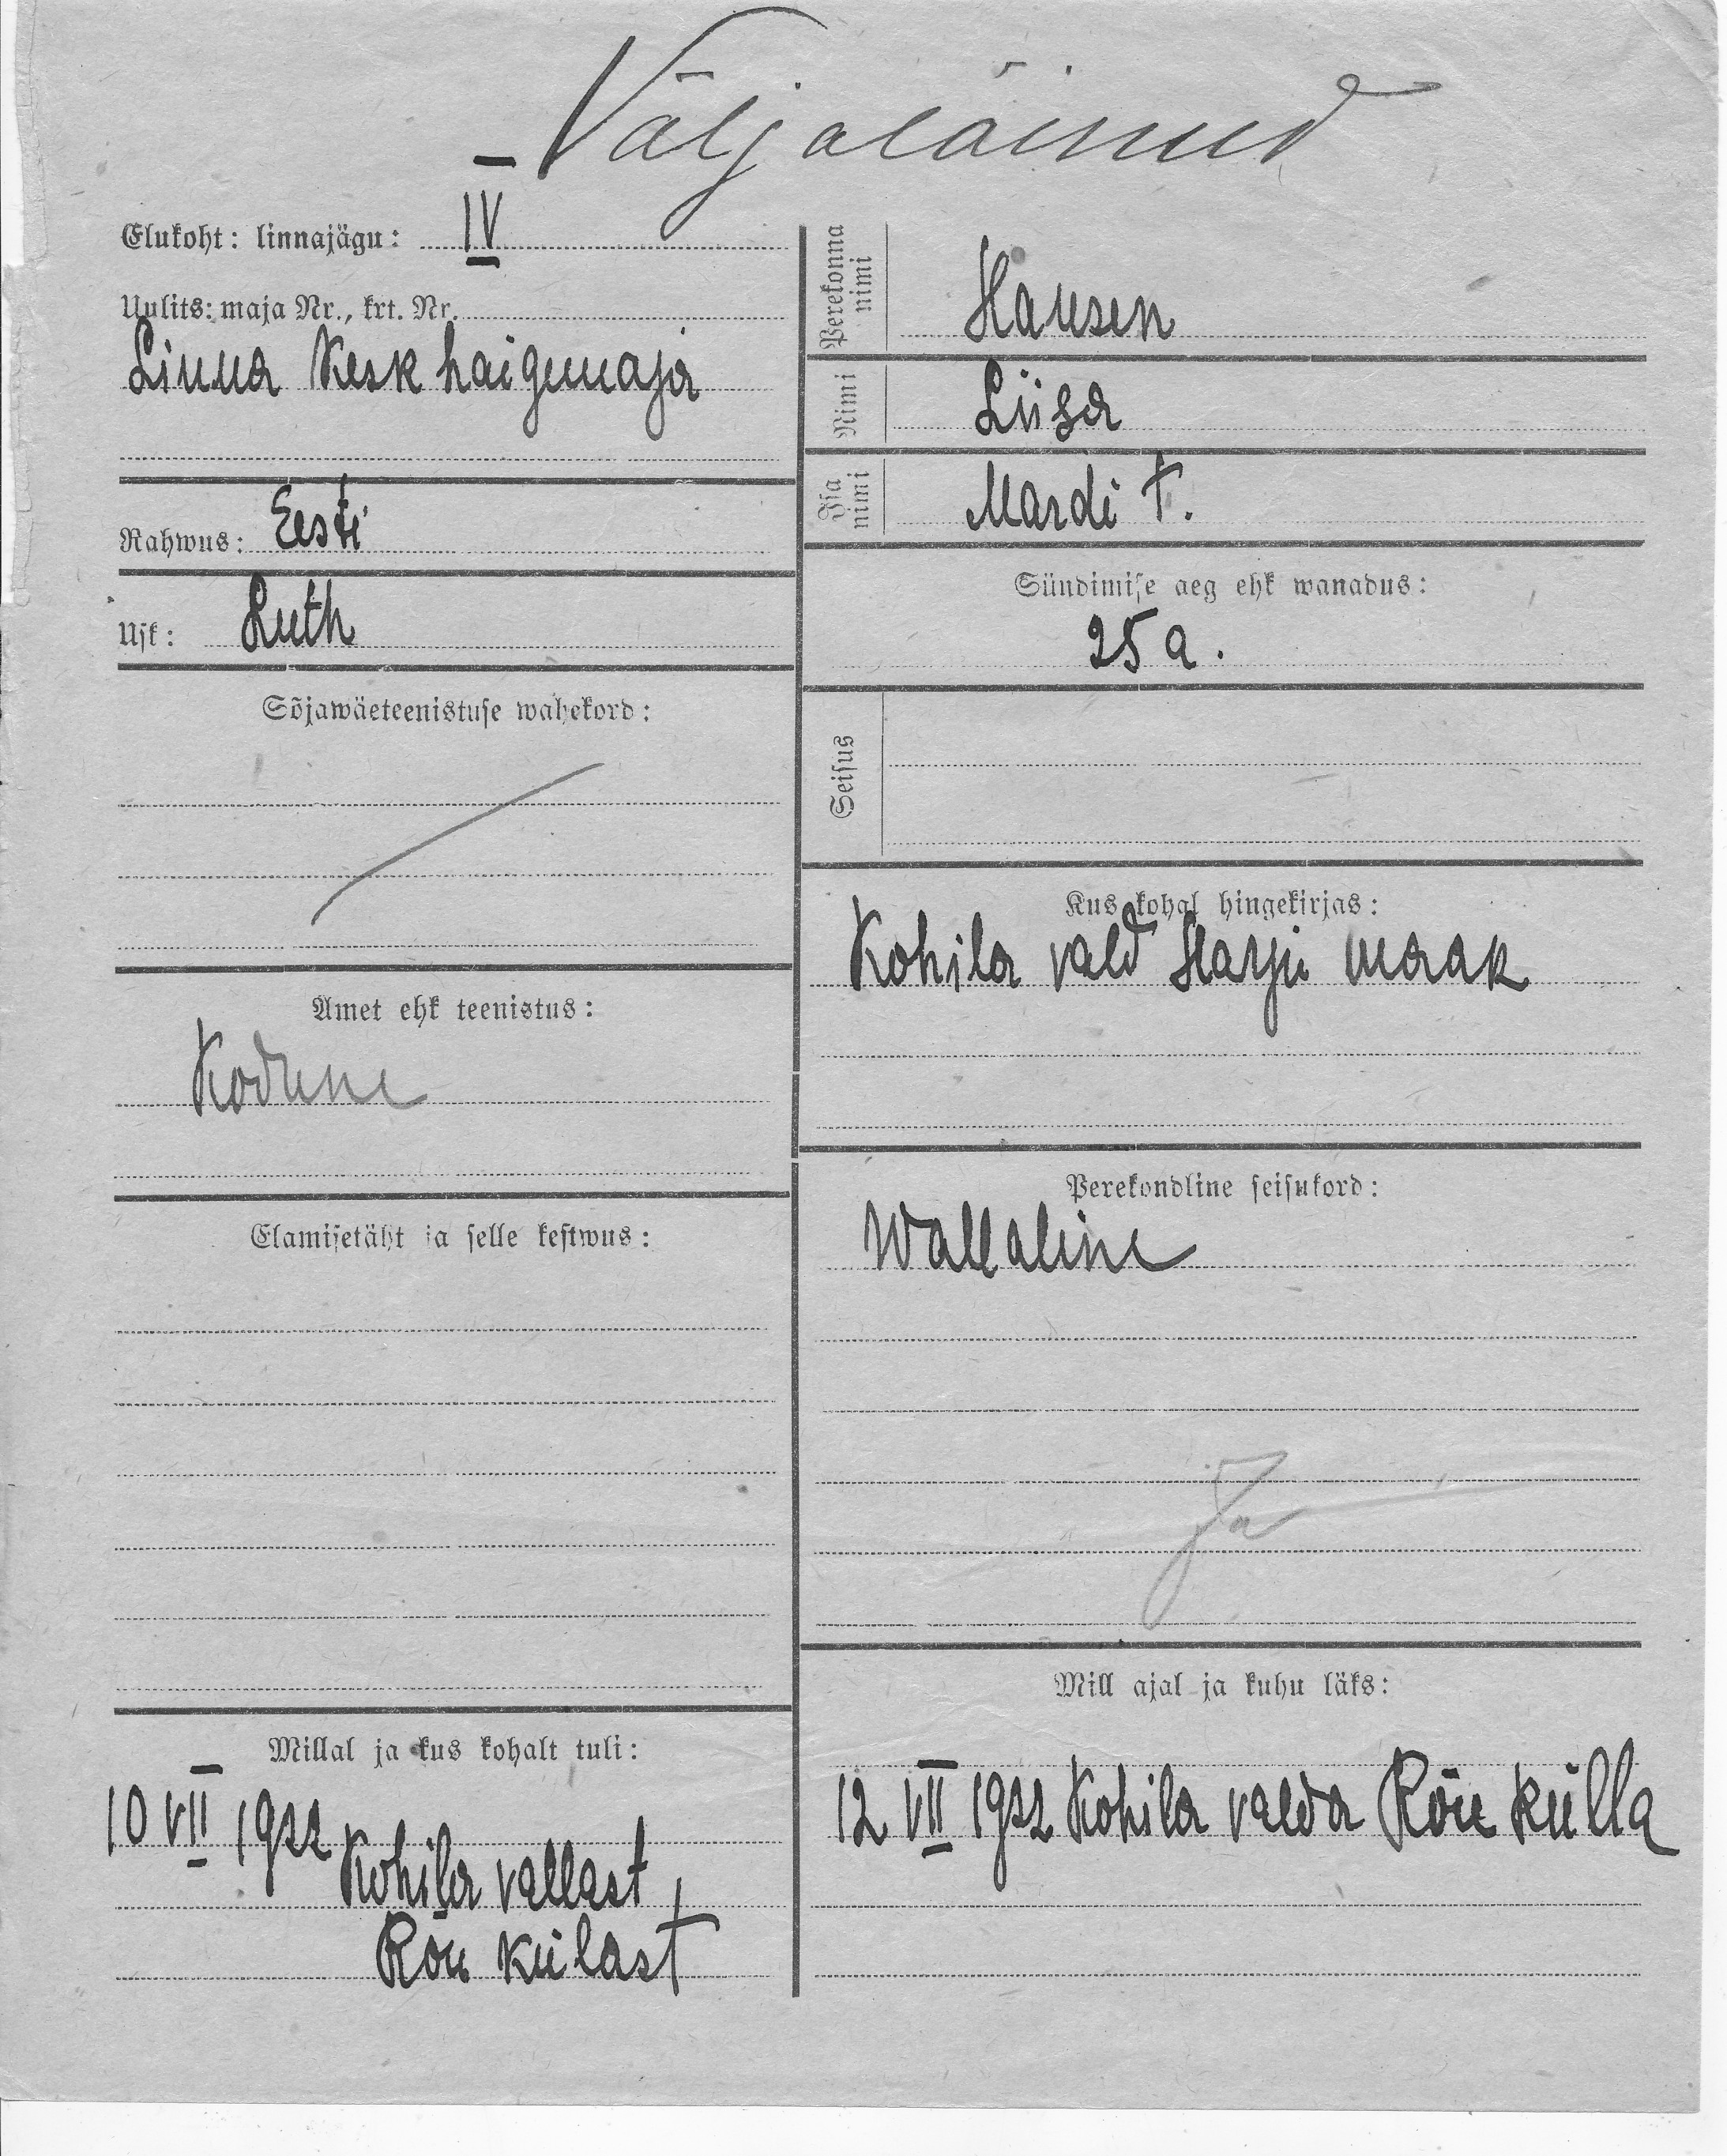 Väljaläinud
Elukoht: linnajägu: IV
Uulits: maja Nr., krt. Nr.
Linna Keskhaigemaja
Rahwus: Eesti
Usk: Luth
Sõjawäeteenistuse wahekord:
Amet ehk teenistus:
Kodune
Elamisetäht ja selle kestwus:
Millal ja kus kohalt tuli:
10 VII 1922
Kohila vallast
Rõu külast
Perekonna nimi Hansen
Nimi Liisa
Isa nimi Mardi t.
Sündimise aeg ehk wanadus:
25 a.
Seisus
Kus kohal hingekirjas:
Kohila vald Harju maak
Perekondline seisukord:
Wallaline
Ja
Mill ajal ja kuhu läks:
12 VII 1922 Kohila valda Rõue külla